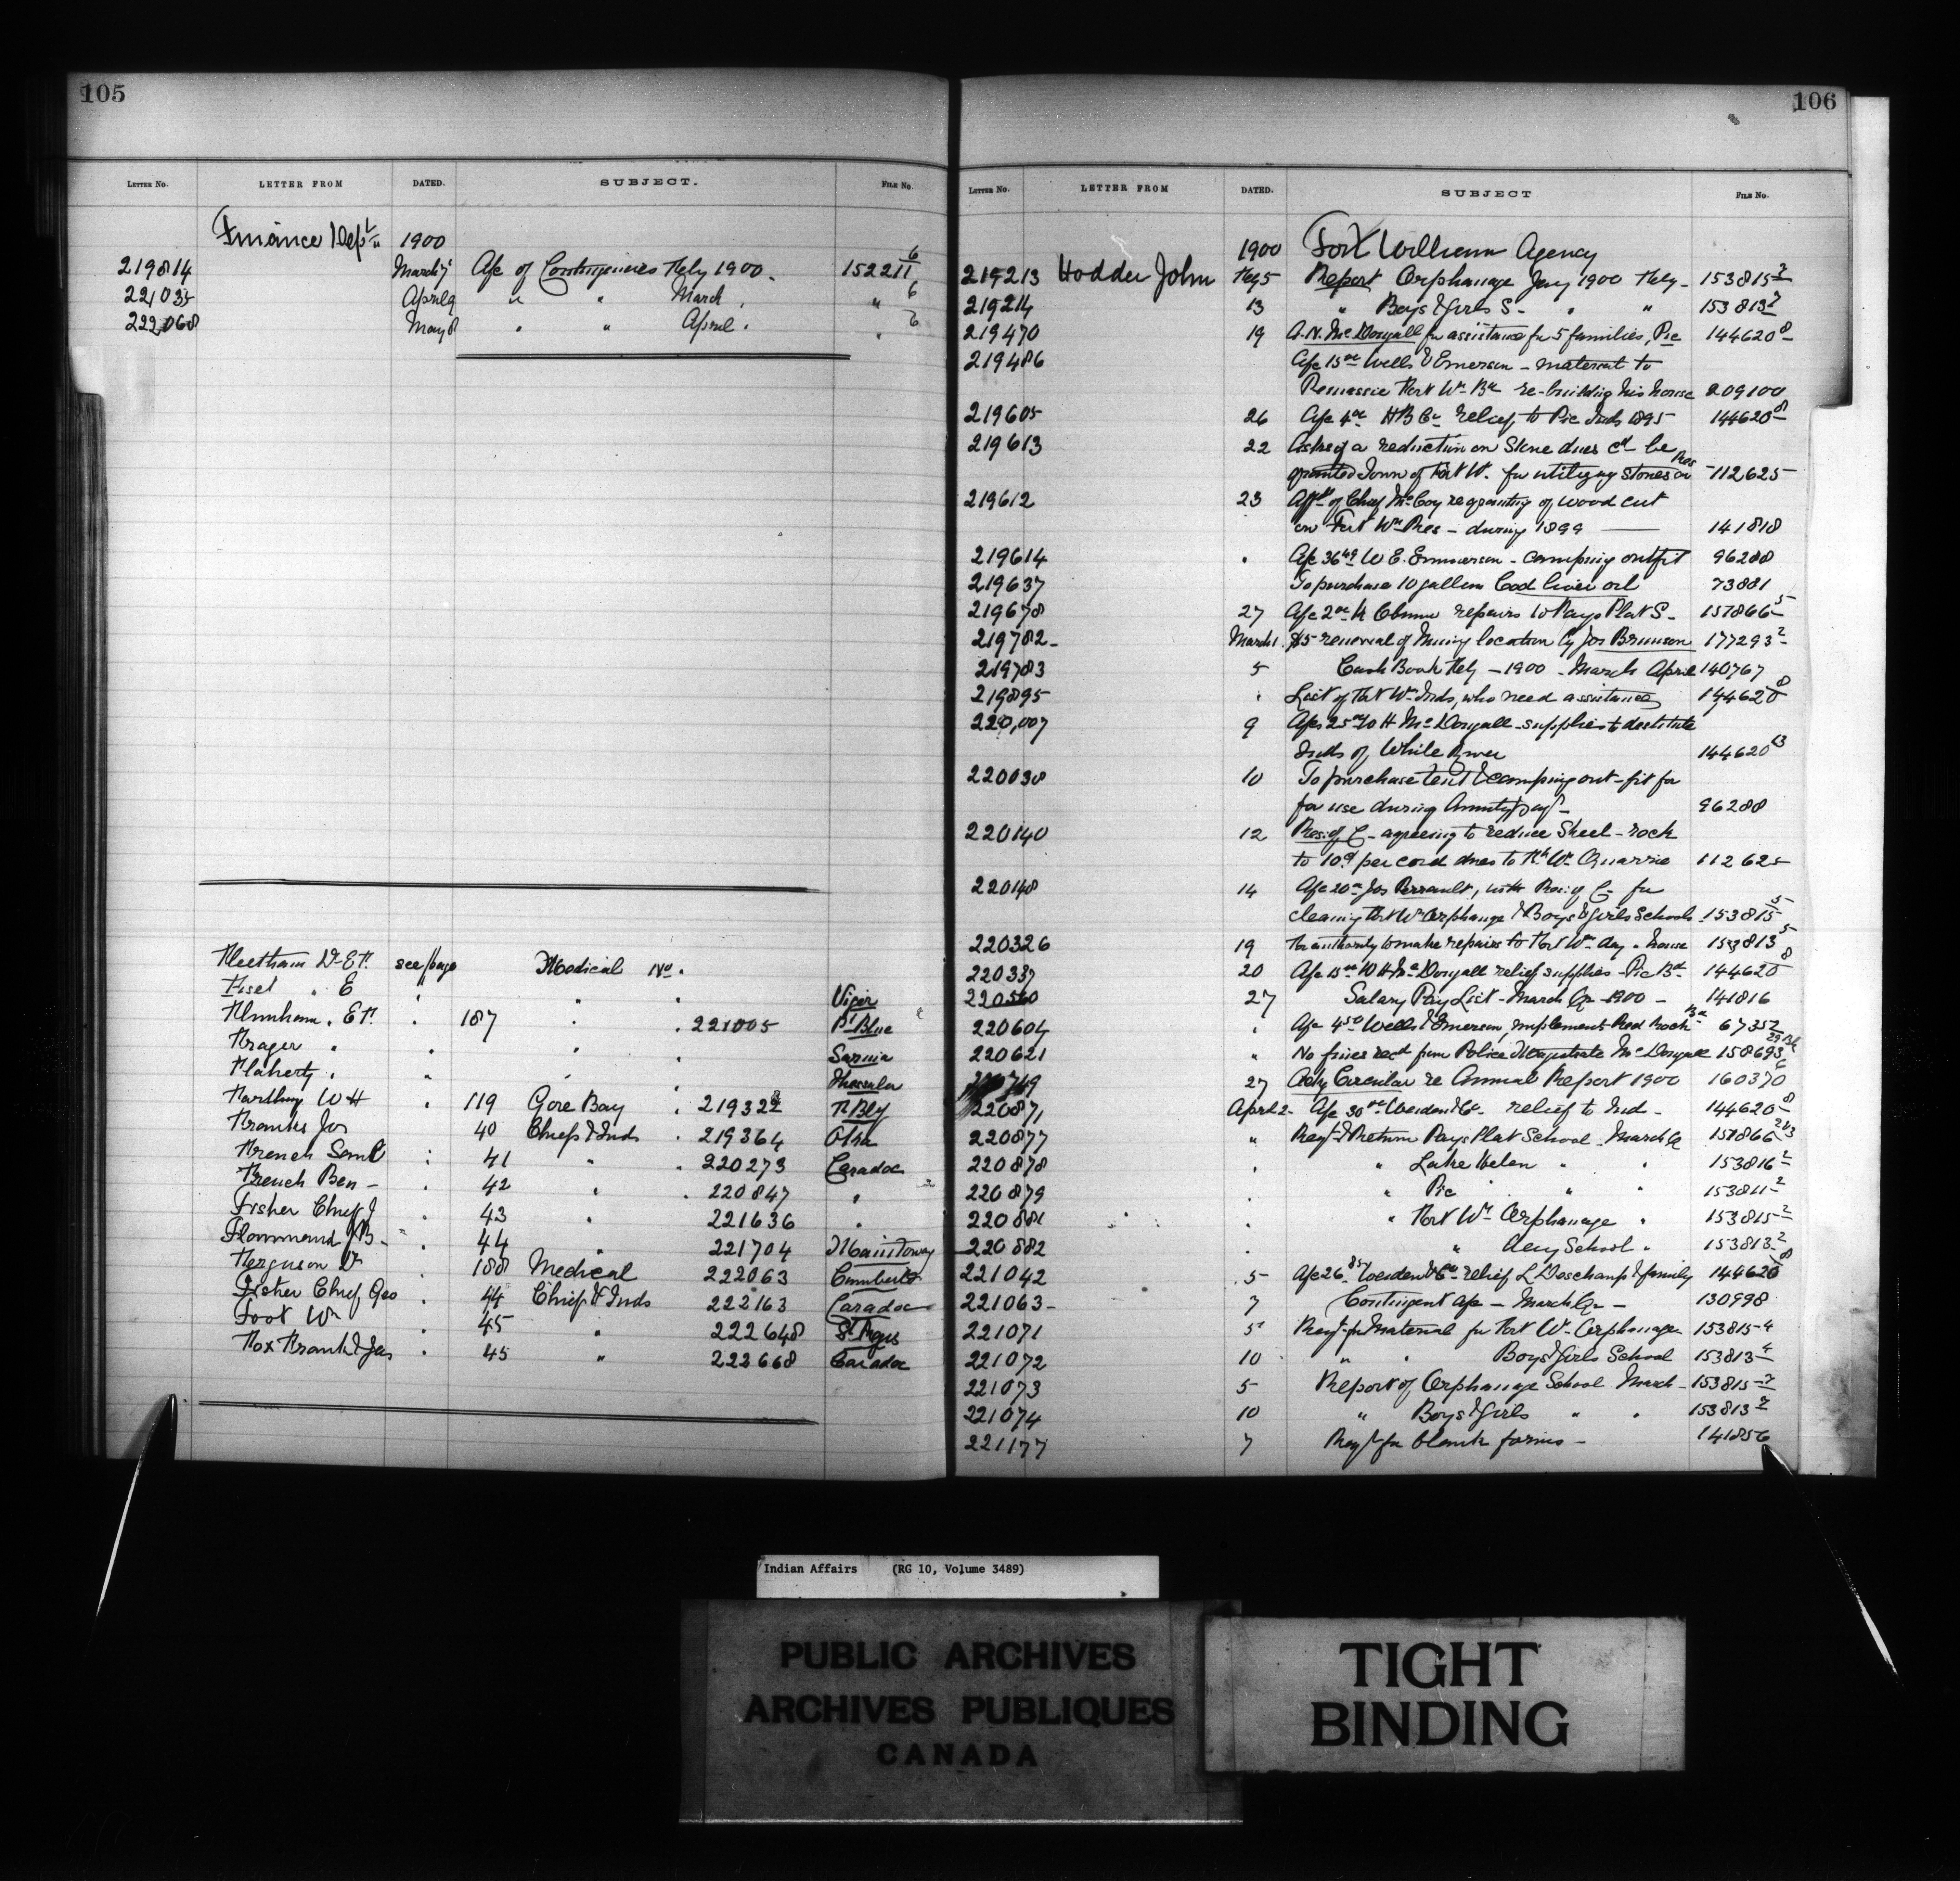 105
LETTER NO. LETTER FROM DATED. SUBJECT. FILE NO.
Finance Dept. 1900
219814 March 7 A/c of Contingencies Feby 1900. 152211 6
221035 April 9 " " March . " 6
222068 May 8 " " April . " 6
Fleetham Dr E F. see page Medical No.
Fisel " E " " " Viger
" E F. . 187 " . 221005 Pt Blue
Frager " " " . Sarnia
Flaherty . " " . Thessalon
W H . 119 Gore Bay . 219322
Franks Jos . 40 Chiefs & Inds . 219364
French Saml : 41 " . 220273 Caradoc
French Ben - . 42 " . 220847 "
Fisher Chief J . 43 " 221636 .
J B - . 44 " 221704 Manitowg
Ferguson Dr . 188 Medical 222063 Cumberld
Fisher Chief Geo . 44 Chiefs & Inds 222163 Caradoc
Foot Wm 45 " 222648 St Regis
Fox Frank & Jas . 45 " 222668 Caradoc
106
LETTER NO. LETTER FROM DATED. SUBJECT FILE NO.
1900 Fort William Agency
219213 Hodder John Feby 5 Report Orphanage Jany 1900 Feby - 153815 7
219214 13 " Boys & Girls S - " " 153813 7
219470 19 A. N. McDougall for assistance for 5 families, Pic 144620 8
219486 A/c 15 00 Wells & Emerson - material to
Fort Wm Bd re-building his house 209100
219605 26 A/c 4 00 H B Co relief to Pic Inds 1895 144620 8
219613 22 Asks if a reduction on Stone dues cd be
granted Town of Fort W. for utilizing stones on Res 112625
219612 23 Afft of Chief McCoy re quantity of wood cut
on Fort Wm Res - during 1899 141818
219614 . A/c 36 49 W E. Emmerson - camping outfit 96288
219637 To purchase 10 gallons Cod liver oil 73881
219678 27 A/c 2 00 repairs to Pays Plat S - 157866 5
219782 March 1. $5 renewal of Mining location by Jos Brunson 177293 2
219783 5 Cash Book Feby - 1900 - March April 140767
219895 . List of Fort Wm Inds, who need assistance 144620 8
220,007 9 A/cs 25 00 W H McDougall - supplies to destitute
Inds of White River 144620 13
220038 10 To purchase tent & camping out-fit for
for use during Annuity payt - 96288
220140 12 Res: of C - agreeing to reduce Sheel-rock
to 10¢ per cord dues to Ft Wm Quarrie 112625
220148 14 A/c 20 00 Jos Perrault, with Res: of C - for
cleaning Fort Wm Orphange & Boys & Girls Schools. 153815 5
220326 19 For authority to make repairs to Fort Wm day - house 153813 5
220337 20 A/c 15 00 W H McDougall relief supplies - Pic Bd 144620 8
220560 27 Salary Pay List - March Qr - 1900 - 141816
220604 . A/c 4 50 Wells & Emerson, implements Red Rock Bd 67352
220621 " No fines recd from Police Magistrate McDougall 158693
749 27 Ackg Circular re Annual Report 1900 160370
220871 April 2 - A/c 30 00 & Co - relief to Ind - 144620 8
220877 " Reqt & Return Pays Plat School - March Qr 157866
220878 . " Lake Helen " " 153816 2
220879 . " Pic " " " 153811 2
220881 . " Fort Wm Orphanage " 153815 2
220882 . " Day School " 153813 2
221042 5 - A/c 26 85 & Co - relief L Deschamp & family 144620 8
221063 - 7 Contingent a/c - March Qr - 130998
221071 5 Reqt for Material for Fort Wm - Orphanage 153815 4
221072 10 " " Boys & Girls School 153813 4
221073 5 Report of Orphanage School March - 153815 7
221074 10 " Boys & Girls " . 153813 7
221177 7 Reqt for blank forms - 141856
Indian Affairs (RG 10, Volume 3489)
PUBLIC ARCHIVES
ARCHIVES PUBLIQUES
CANADA
TIGHT
BINDING